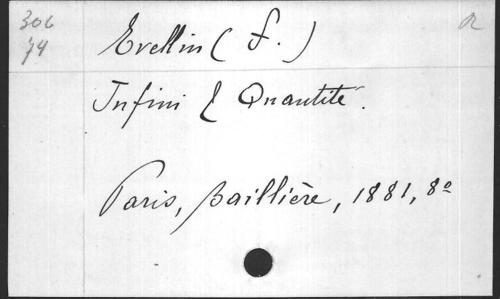 306
74
Evellin (F.)
a
Infini & Quantité.
Paris, Baillière, 1881, 8º